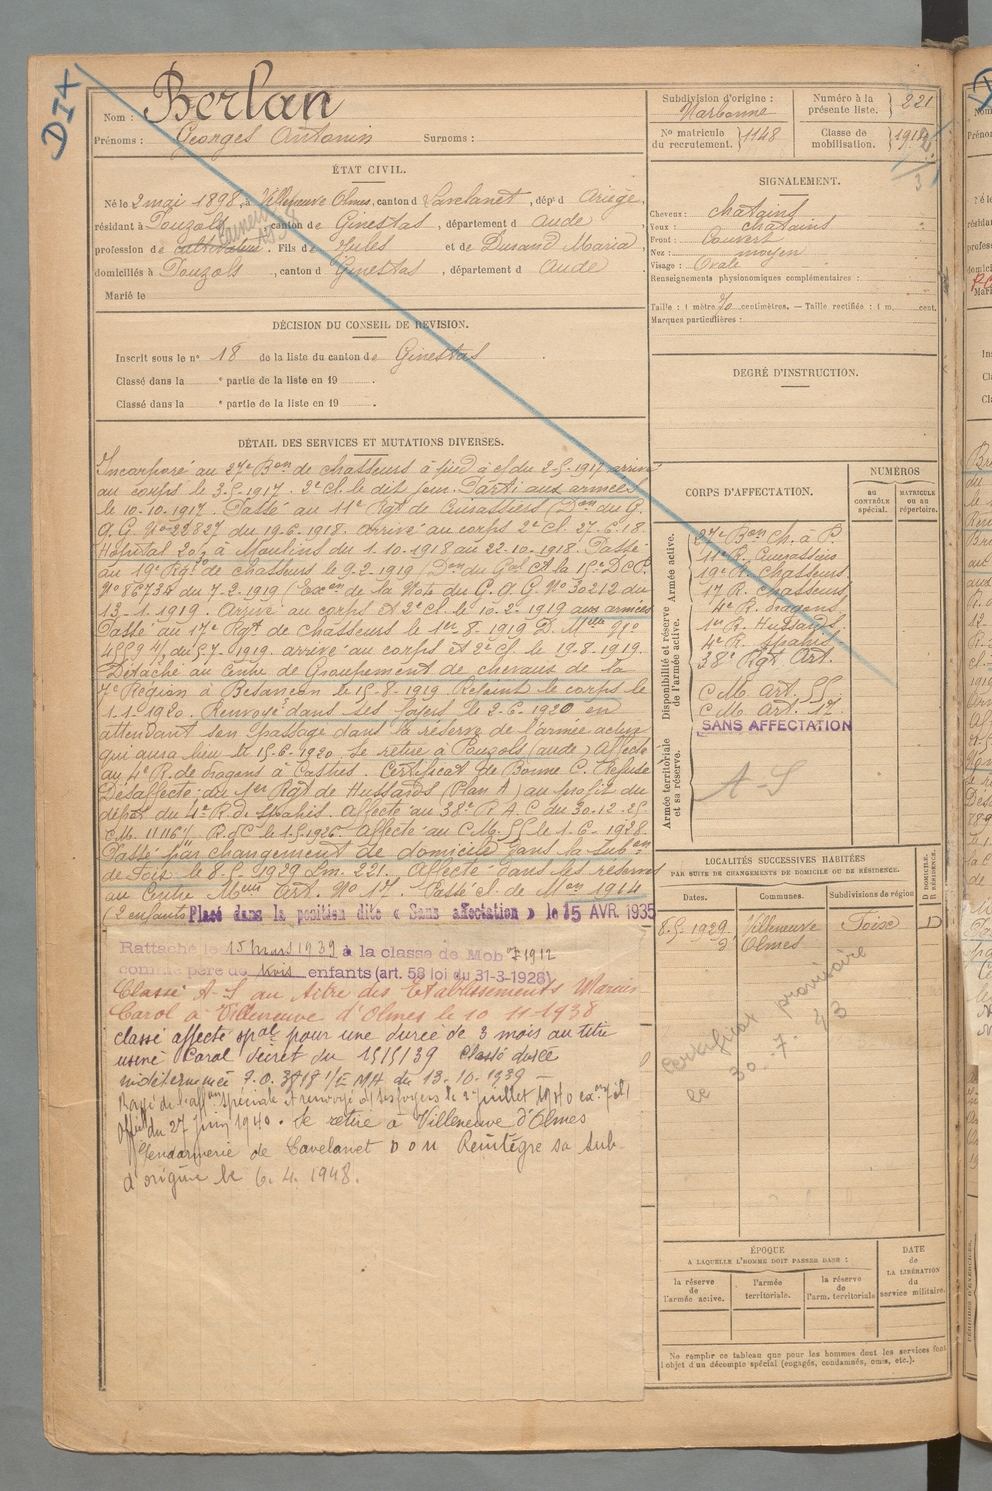 DIX
Nom : Berlan
Prénoms : Georges Antonin Surnoms :
ÉTAT CIVIL.
Né le 2 mai 1898, à Villeneuve Olmes, canton d Lavelanet, dépt d Ariège,
résidant à Pouzols, canton de Ginestas, département d Aude
profession de cultivateur. Fils de Jules et de Durand Maria,
domiciliés à Pouzols, canton d Ginestas, département d Aude
Marié le
DÉCISION DU CONSEIL DE REVISION.
Inscrit sous le n° 18 de la liste du canton de Ginestas.
Classé dans la e partie de la liste en 19 .
Classé dans la e partie de la liste en 19 .
DÉTAIL DES SERVICES ET MUTATIONS DIVERSES.
Incorporé au 27e Bon de chasseurs à pied à c/ du 2-5-1917 arrivé
au corps le 3.5.1917. 2e cl. le dit jour. Parti aux armées
le 10.10.1917. Passé au 11e Rgt de Cuirassiers (Don du G.
Q.G. No 22827 du 19.6.1918. arrivé au corps 2e Cl. 27.6.18.
Hôpital 20 à Moulins du 1.10.1918 au 22.10.1918. Passé
au 19e Rgt de chasseurs le 9.2.1919 (Don du Gal Ct la 15e D.C.P.
No 8673 du 7.2.1919 (Exon de la Note du G.Q.G. No 30212 du
13.1.1919. Arrivé au corps et 2e cl. le 10.2.1919 aux armées
Passé au 17e Rgt de chasseurs le 1er.8.1919 D. Mlle No
4559 4/ du 5.7.1919. arrivé au corps et 2e cl. le 19.8.1919.
Détaché au Centre de Groupement de chevaux de la
7e Région à Besançon le 15.8.1919. Rejoint le corps le
1.1.1920. Renvoyé dans ses foyers le 2.6.1920 en
attendant son passage dans la réserve de l'armée active
qui aura lieu le 15.6.1920. Se retire à Pouzols (aude) Affecté
au 4e R. de dragons à Castres. Certificat de Bonne C. Refusé
Désaffecté du 1er Rgt de Hussards (Plan A) au profit du
dépôt du 4e R. de spahis. Affecté au 38e R.A.C. du 30.12.25.
C.M. 11167 R. d C le 1.5.1926. Affecté au C.M. 55 le 1.6.1928.
Passé par changement de domicile dans la subon
de Foix le 8.5.1929 Lm. 221. Affecté dans les réserves
au Centre Mun Art. No 17. Passé cl. de Mon 1914
(2 enfants) Placé dans la position dite « Sans affectation » le 15 AVR. 1935
Rattaché le 15 mars 1939 à la classe de Mob on 1912
comme père de trois enfants (art. 58 loi du 31-3-1928)
Classé A-S au titre des Etablissements
Carol à Villeneuve d'Olmes le 10 11-1938
classé affecté spal pour une durée de 3 mois au titre
usine Carol décret du 15/5/39 Classé durée
indéterminée
Rayé de l'affon spéciale et renvoyé d/ ses foyers le 2 juillet 1940
du 27 Juin 1940. Se retire à Villeneuve d'Olmes
Gendarmerie de Lavelanet DOM Reintègre sa sub
d'origine le 6.4.1948.
Subdivision d'origine : Narbonne
Numéro à la présente liste. 221
No matricule du recrutement. 1148
Classe de mobilisation. 1918
SIGNALEMENT.
Cheveux : chatains
Yeux : chatains
Front : Couvert
Nez : moyen
Visage : Ovale
Renseignements physionomiques complémentaires :
Taille : 1 mètre 70 centimètres. — Taille rectifiée : 1 m. cent.
Marques particulières :
DEGRÉ D'INSTRUCTION.
CORPS D'AFFECTATION.
NUMÉROS
AU CONTRÔLE spécial.
MATRICULE OU AU répertoire.
Armée active.
Disponibilité et réserve de l'armée active.
Armée territoriale et sa réserve.
27e Bon Ch. à P.
11e R. Cuirassiers
19e R. Chasseurs
17 R. Chasseurs
4e R. dragons
1er R. Hussards
4e R. Spahis
38e Rgt Art.
C M. Art. 55.
C M. Art. 17.
SANS AFFECTATION
A-S
LOCALITÉS SUCCESSIVES HABITÉES
PAR SUITE DE CHANGEMENTS DE DOMICILE OU DE RÉSIDENCE.
D DOMICILE. R RÉSIDENCE.
Dates. Communes. Subdivisions de région
8.5.1929 Villeneuve d'Olmes Foix D
Certificat provisoire
le 30.7.43
ÉPOQUE
A LAQUELLE L'HOMME DOIT PASSER DANS :
DATE de LA LIBÉRATION du service militaire.
la réserve de l'armée active.
l'armée territoriale.
la réserve de l'arm. territoriale
Ne remplir ce tableau que pour les hommes dont les services font
l'objet d'un décompte spécial (engagés, condamnés, omis, etc.).